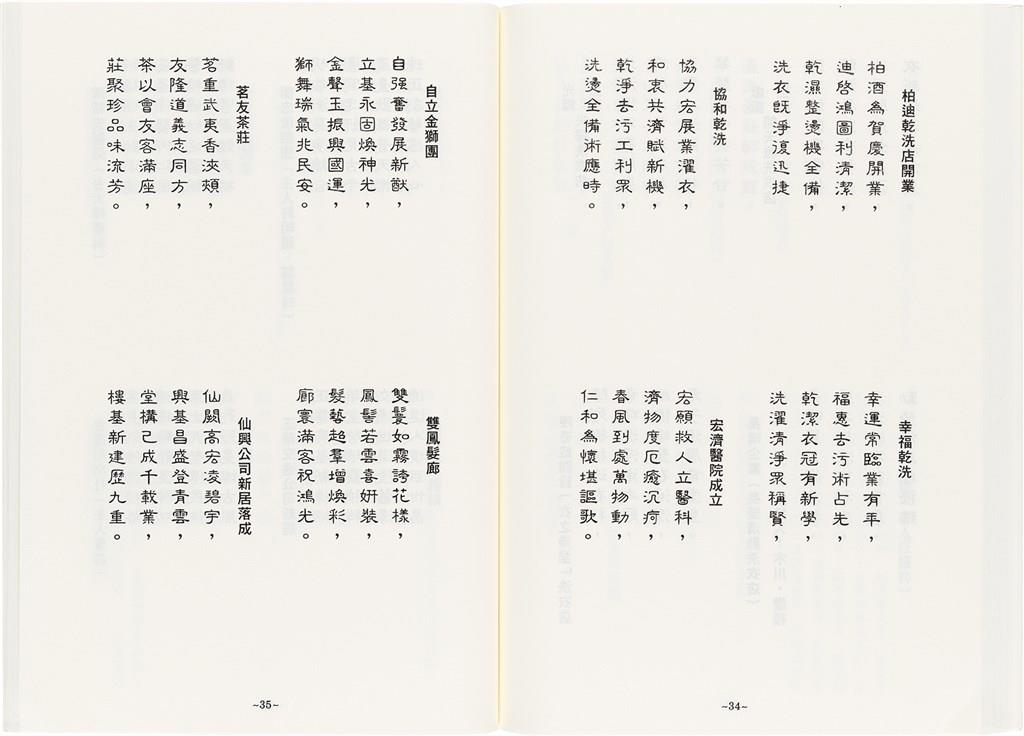 柏迪乾洗店開業
柏酒為賀慶開業，
迪啓鴻圖利清潔，
乾濕整燙機全備，
洗衣既淨復迅捷
協和乾洗
協力宏展業濯衣，
和衷共濟賦新機，
乾淨去污工利眾，
洗燙全備術應時。
幸福乾洗
幸運常臨業有年，
福惠去污術占先，
乾潔衣冠有新學，
洗濯清淨眾稱賢，
宏濟醫院成立
宏願救人立醫科，
濟物度厄癒沉疴，
春風到處萬物動，
仁和為懷堪謳歌。
~34~
自立金獅團
自强奮發展新猷，
立基永固煥神光，
金聲玉振興國運，
獅舞瑞氣兆民安。
茗友茶莊
茗重武夷香浹頰，
友隆道義志同方，
茶以會友客滿座，
莊聚珍品味流芳。
雙鳳髮廊
雙鬟如霧誇花樣，
鳳髻若雲喜妍裝，
髮藝超羣增煥彩，
廊寰滿客祝鴻光。
仙興公司新居落成
仙闕高宏凌碧宇，
興基昌盛登青雲，
堂構已成千載業，
樓基新建歷九重。
~35~